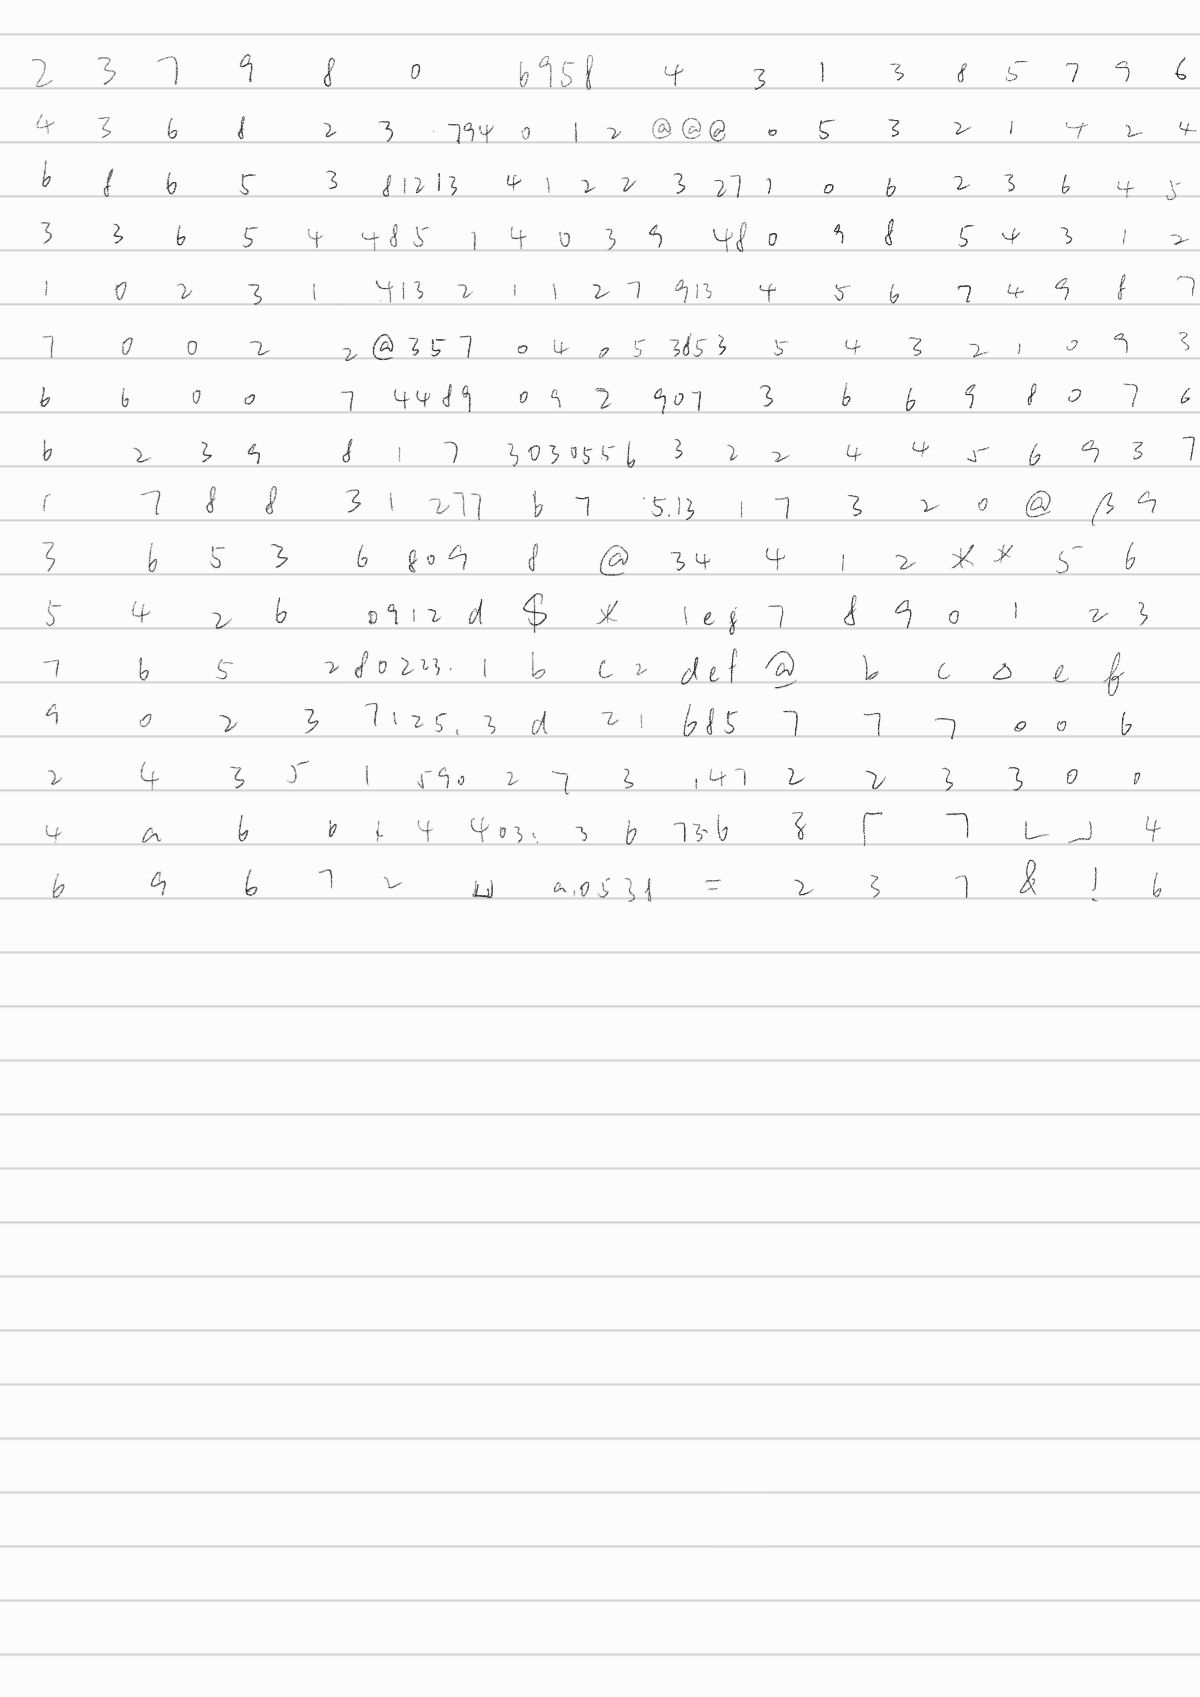 2 3 7 9 8 0 6958 4 3 1 3 8 5 7 9 6
4 3 6 8 2 3 794 0 1 2 @@@ 0 5 3 2 1 4 2 4
6 8 6 5 3 81213 4 1 2 2 3 27 1 0 6 2 3 6 4 5
3 3 6 5 4 485 1 4 0 3 9 480 9 8 5 4 3 1 2
1 0 2 3 1 413 2 1 1 2 7 913 4 5 6 7 4 9 8 7
7 0 0 2 2 @ 3 5 7 0 4 0 5 3853 5 4 3 2 1 0 9 3
6 6 0 0 7 4489 0 9 2 907 3 6 6 9 8 0 7 6
6 2 3 9 8 1 7 3030556 3 2 2 4 4 5 6 9 3 7
1 7 8 8 3 1 277 6 7 5.13 1 7 3 2 0 @ β 9
3 6 5 3 6 809 8 @ 34 4 1 2 * * 5 6
5 4 2 6 0912 d $ * 1 e g 7 8 9 0 1 2 3
7 6 5 280223. 1 b c 2 def @ b c o e f
9 0 2 3 7125. 3 d 2 1 685 7 7 7 0 0 6
2 4 3 5 1 590 2 7 3 .147 2 2 3 3 0 0
4 a 6 6 + 4 403. 3 6 73.6 8 「 7 ㄴ 」 4
6 9 6 7 2 ㅂ a.0538 = 2 3 7 & ! 6